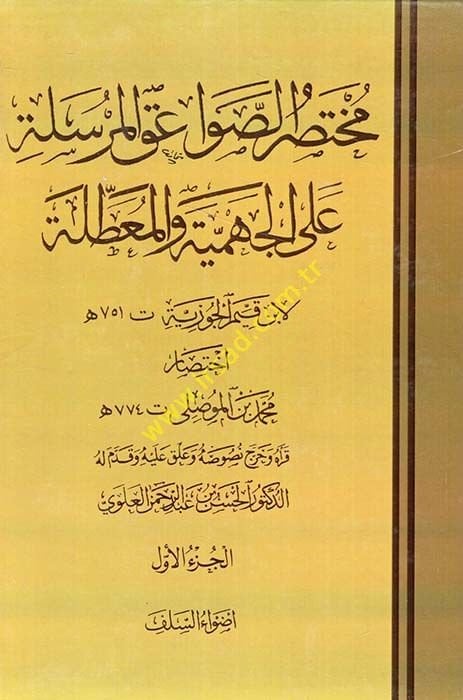 مختصر الصواعق المرسلة
على الجهمية والمعطلة
لابن قيم الجوزية ت ٧٥١ ه
اختصار
محمد بن الموصلي ت ٧٧٤ ه
قرأه وخرج نصوصه وعلق عليه وقدم له
الدكتور الحسن بن عبد الرحمن العلوي
الجزء الأول
أضواء السلف